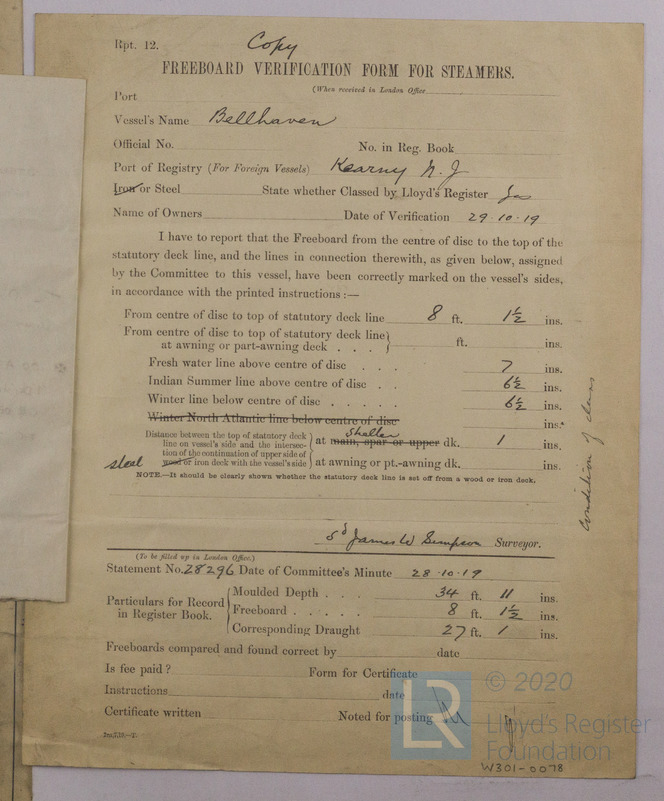 Rpt. 12.
Copy
FREEBOARD VERIFICATION FORM FOR STEAMERS.
(When received in London Office
Port
Vessel's Name Bellhaven
Official No. No. in Reg. Book
Port of Registry (For Foreign Vessels) Kearny N. J
Iron or Steel State whether Classed by Lloyd's Register Yes
Name of Owners Date of Verification 29.10.19
I have to report that the Freeboard from the centre of disc to the top of the
statutory deck line, and the lines in connection therewith, as given below, assigned
by the Committee to this vessel, have been correctly marked on the vessel's sides,
in accordance with the printed instructions :—
From centre of disc to top of statutory deck line 8 ft. 1½ ins.
From centre of disc to top of statutory deck line
at awning or part-awning deck . . . ft. ins.
Fresh water line above centre of disc . . . 7 ins.
Indian Summer line above centre of disc . . 6½ ins.
Winter line below centre of disc . . . . . 6½ ins.
Winter North Atlantic line below centre of disc ins.
Distance between the top of statutory deck
line on vessel's side and the intersec-
tion of the continuation of upper side of
steel wood or iron deck with the vessel's side
Shelter
at main, spar or upper dk. 1 ins.
at awning or pt.-awning dk. ins.
NOTE.—It should be clearly shown whether the statutory deck line is set off from a wood or iron deck.
Condition of class
Sd James W Simpson Surveyor.
(To be filled up in London Office.)
Statement No. 28296 Date of Committee's Minute 28.10.19
Particulars for Record
in Register Book.
Moulded Depth . . . 34 ft. 11 ins.
Freeboard . . . . . 8 ft. 1½ ins.
Corresponding Draught 27 ft. 1 ins.
Freeboards compared and found correct by date
Is fee paid? Form for Certificate
Instructions date
Certificate written Noted for posting
LR © 2020
Lloyd's Register
Foundation
W301-0078